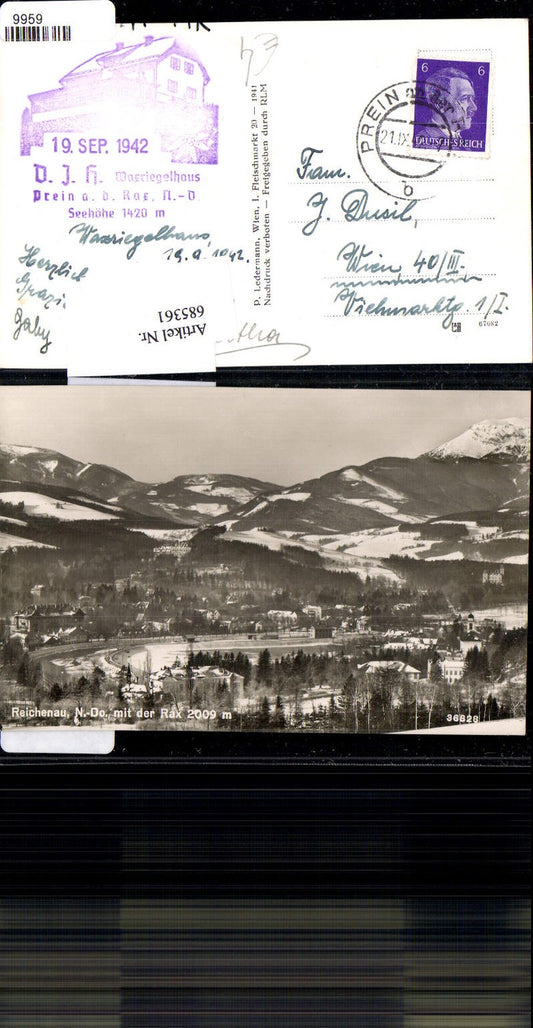 9959
19. SEP. 1942
D. J. H. Waxriegelhaus
Prein a. d. Rax, N.-D.
Seehöhe 1420 m
Waxriegelhaus,
19.9.1942.
Herzlich
Gaby
Artikel Nr.
685361
P. Ledermann, Wien, I. Fleischmarkt 20 – 1941
Nachdruck verboten – Freigegeben durch RLM
6 6
DEUTSCHES REICH
PREIN
21.IX.
b
Fam.
J. Dusil,
Wien, 40/III.
Viehmarktg. 1/I.
67082
Reichenau, N.-Do. mit der Rax 2009 m
36628